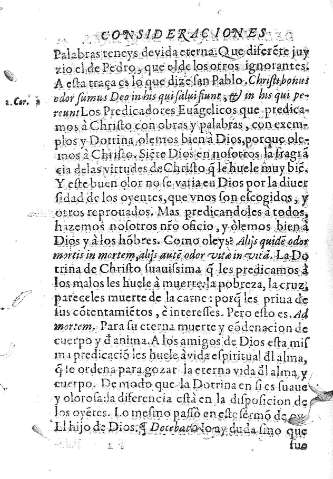 CONSIDERACIONES
Palabras teneys de vida eterna. Que diferẽte juy
zio el de Pedro, que el de los otros ignorantes.
A esta traça es lo que dize san Pablo. Christi bonus
2. Cor. 2 odor sumus Deo in his qui salui fiunt, & in his qui pe-
reunt Los Predicadores Euãgelicos que predica-
mos à Christo con obras y palabras, con exem-
plos y Dotrina olemos bien à Dios, porque ole-
mos à Christo. Siẽte Dios en nosotros la fragrã
cia de las virtudes de Christo q̃ le huele muy biẽ.
Y este buen olor no se varia en Dios por la diuer
sidad de los oyentes, que vnos son escogidos, y
otros reprouados. Mas predicandoles à todos,
hazemos nosotros nr̃o oficio, y òlemos bien à
Dios y à los hõbres. Como oleys? Alijs quidẽ odor
mortis in mortem, alijs autẽ odor vitæ in vitã. La Do
trina de Christo suauissima q̃ les predicamos à
los malos les huele à muerte la pobreza, la cruz,
pareceles muerte de la carne: porq̃ les priua de
sus cõtentamiẽtos, è interesses. Pero esto es. Ad
mortem. Para su eterna muerte y cõdenacion de
cuerpo y d̃ anima. A los amigos de Dios esta mis
ma predicaciõ les huele à vida espiritual d̃l alma,
q̃ le ordena para gozar la eterna vida d̃l alma, y
cuerpo. De modo que la Dotrina en si es suaue
y olorosa: la diferencia està en la disposicion de
los oyẽtes. Lo mesmo passò en este sermõ de oy
El hijo de Dios, q̃ Docebat no ay duda sino que
fue